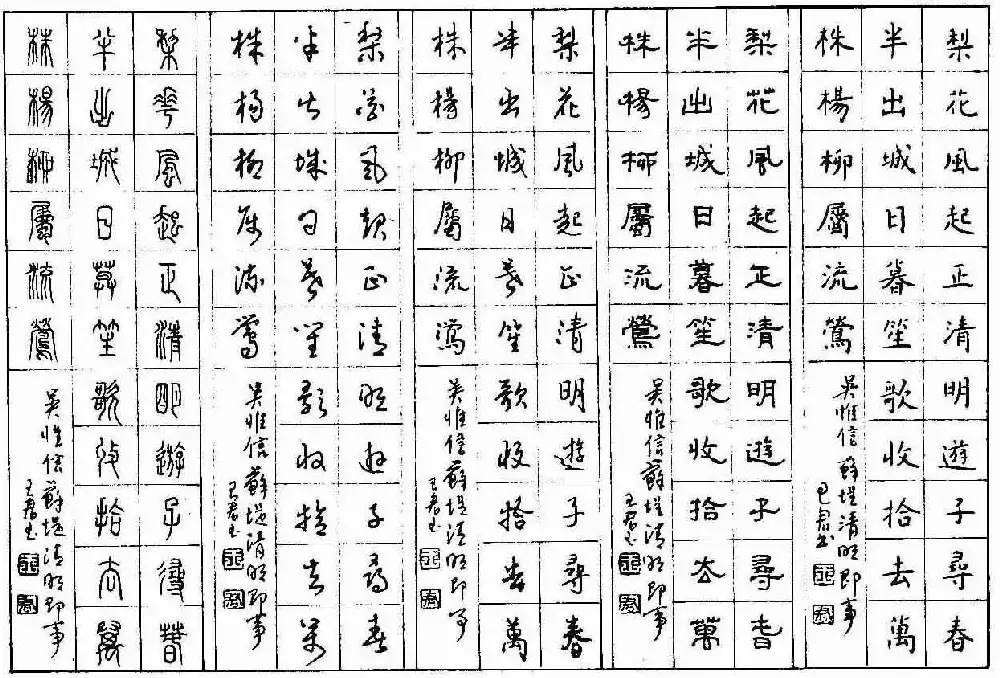 梨花風起正清明遊子尋春
半出城日暮笙歌收拾去萬
株楊柳屬流鶯
吳惟信蘇堤清明即事
梨花風起正清明遊子尋春
半出城日暮笙歌收拾去萬
株楊柳屬流鶯
吳惟信蘇堤清明即事
梨花風起正清明遊子尋春
半出城日暮笙歌收拾去萬
株楊柳屬流鶯
吳惟信蘇堤清明即事
梨花風起正清明遊子尋春
半出城日暮笙歌收拾去萬
株楊柳屬流鶯
吳惟信蘇堤清明即事
梨花風起正清明遊子尋春
半出城日暮笙歌收拾去萬
株楊柳屬流鶯
吳惟信蘇堤清明即事